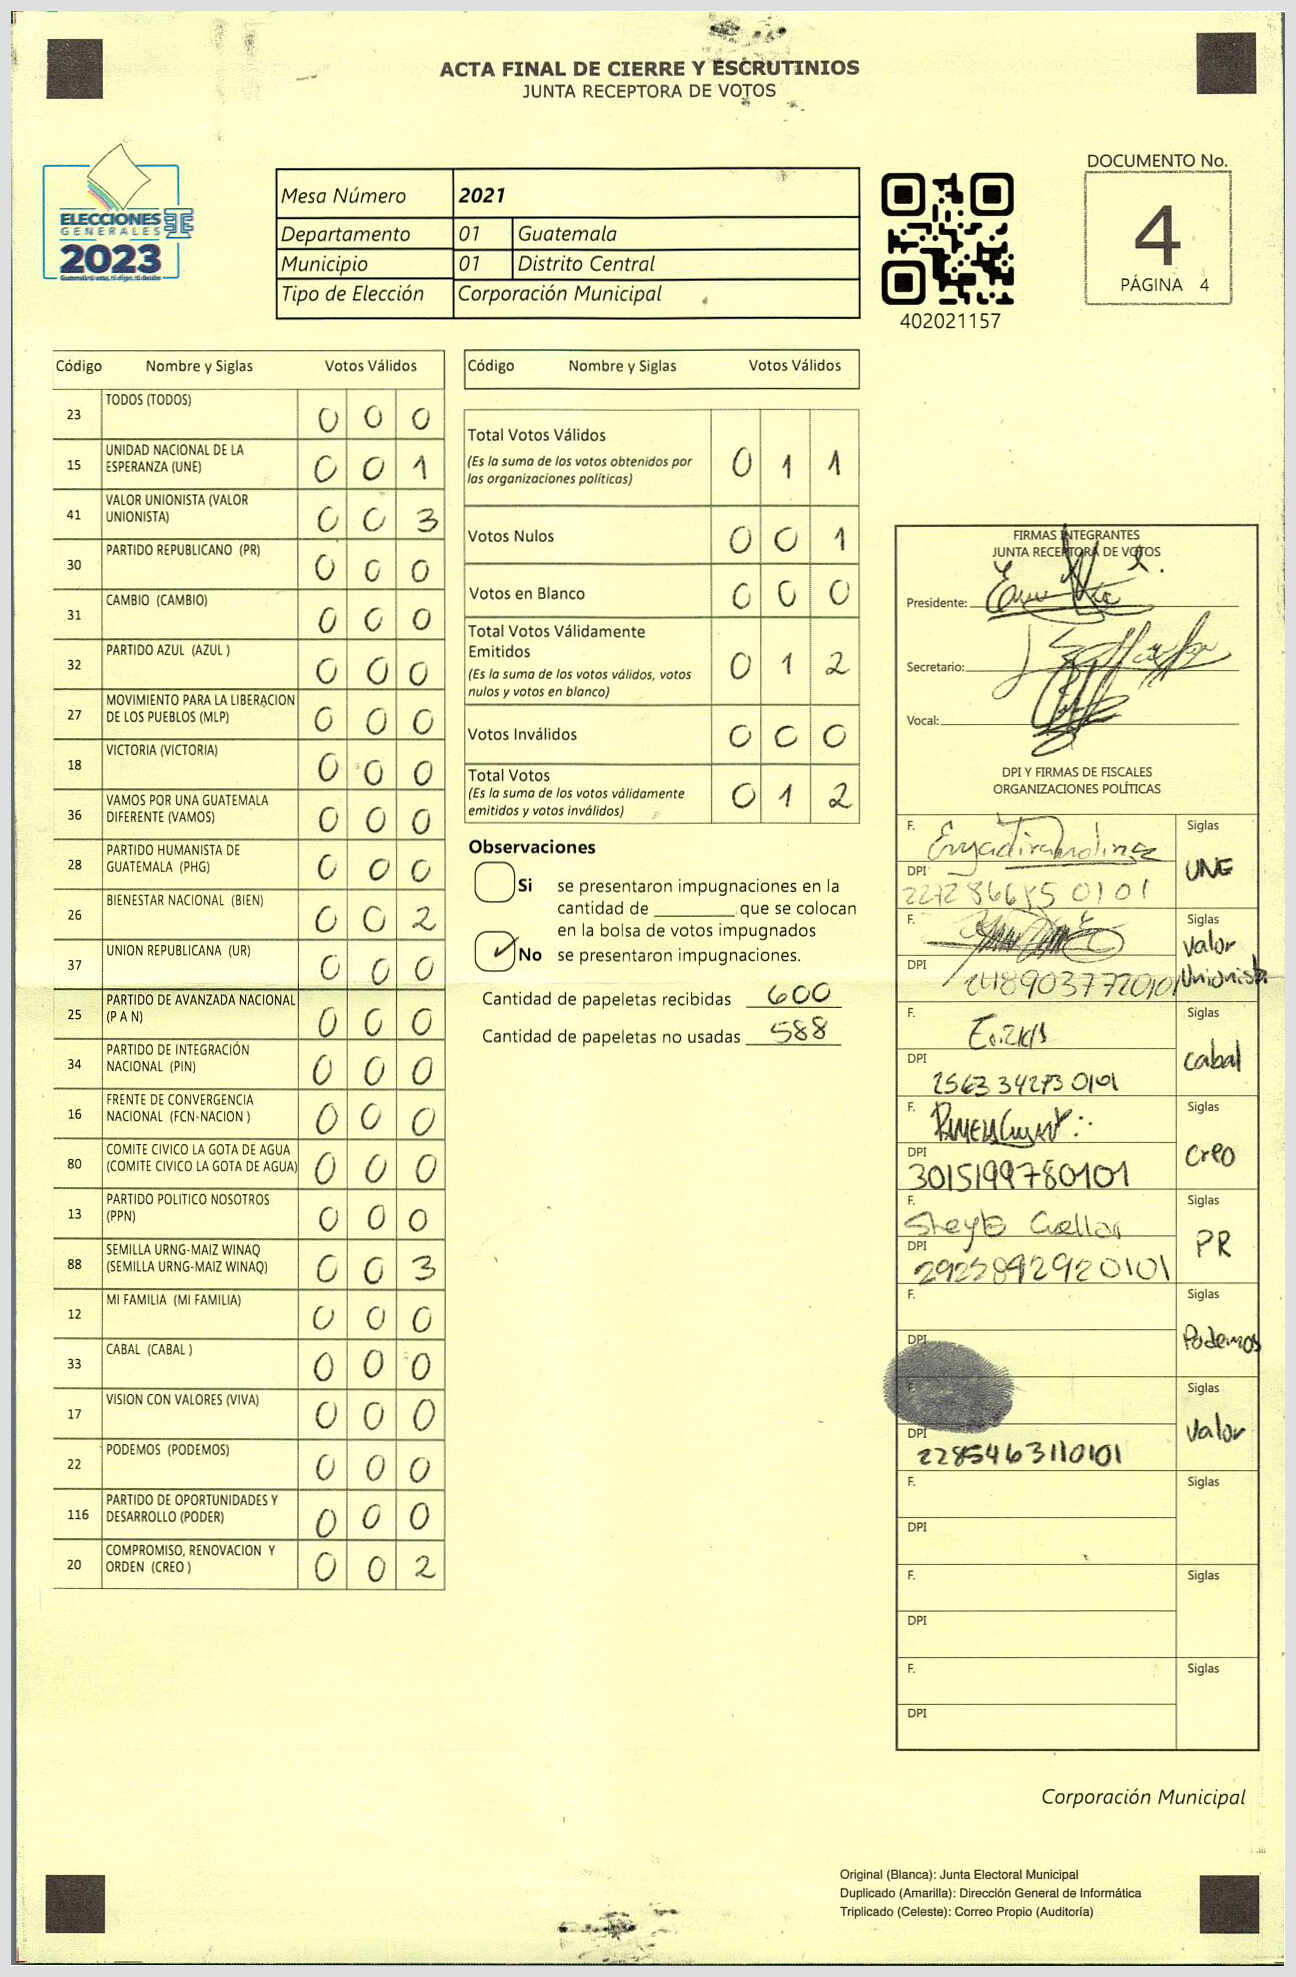 ACTA FINAL DE CIERRE Y ESCRUTINIOS
JUNTA RECEPTORA DE VOTOS
ELECCIONES
GENERALES
2023
Mesa Número 2021
Departamento 01 Guatemala
Municipio 01 Distrito Central
Tipo de Elección Corporación Municipal
402021157
DOCUMENTO No.
4
PÁGINA 4
Código Nombre y Siglas Votos Válidos
23 TODOS (TODOS) 0 0 0
15 UNIDAD NACIONAL DE LA
ESPERANZA (UNE) 0 0 1
41 VALOR UNIONISTA (VALOR
UNIONISTA) 0 0 3
30 PARTIDO REPUBLICANO (PR) 0 0 0
31 CAMBIO (CAMBIO) 0 0 0
32 PARTIDO AZUL (AZUL ) 0 0 0
27 MOVIMIENTO PARA LA LIBERACION
DE LOS PUEBLOS (MLP) 0 0 0
18 VICTORIA (VICTORIA) 0 0 0
36 VAMOS POR UNA GUATEMALA
DIFERENTE (VAMOS) 0 0 0
28 PARTIDO HUMANISTA DE
GUATEMALA (PHG) 0 0 0
26 BIENESTAR NACIONAL (BIEN) 0 0 2
37 UNION REPUBLICANA (UR) 0 0 0
25 PARTIDO DE AVANZADA NACIONAL
(P A N) 0 0 0
34 PARTIDO DE INTEGRACIÓN
NACIONAL (PIN) 0 0 0
16 FRENTE DE CONVERGENCIA
NACIONAL (FCN-NACION ) 0 0 0
80 COMITE CIVICO LA GOTA DE AGUA
(COMITE CIVICO LA GOTA DE AGUA) 0 0 0
13 PARTIDO POLITICO NOSOTROS
(PPN) 0 0 0
88 SEMILLA URNG-MAIZ WINAQ
(SEMILLA URNG-MAIZ WINAQ) 0 0 3
12 MI FAMILIA (MI FAMILIA) 0 0 0
33 CABAL (CABAL ) 0 0 0
17 VISION CON VALORES (VIVA) 0 0 0
22 PODEMOS (PODEMOS) 0 0 0
116 PARTIDO DE OPORTUNIDADES Y
DESARROLLO (PODER) 0 0 0
20 COMPROMISO, RENOVACION Y
ORDEN (CREO ) 0 0 2
Código Nombre y Siglas Votos Válidos
Total Votos Válidos 0 1 1
(Es la suma de los votos obtenidos por
las organizaciones políticas)
Votos Nulos 0 0 1
Votos en Blanco 0 0 0
Total Votos Válidamente
Emitidos 0 1 2
(Es la suma de los votos válidos, votos
nulos y votos en blanco)
Votos Inválidos 0 0 0
Total Votos 0 1 2
(Es la suma de los votos válidamente
emitidos y votos inválidos)
Observaciones
Si se presentaron impugnaciones en la
cantidad de ________ que se colocan
en la bolsa de votos impugnados
No se presentaron impugnaciones.
Cantidad de papeletas recibidas 600
Cantidad de papeletas no usadas 588
FIRMAS INTEGRANTES
JUNTA RECEPTORA DE VOTOS
Presidente:
Secretario:
Vocal:
DPI Y FIRMAS DE FISCALES
ORGANIZACIONES POLÍTICAS
F. Siglas
DPI UNE
F. Siglas
Valor
DPI 2489037720101 Unionista
F. Siglas
DPI cabal
2563 34273 0101
F. Siglas
DPI Creo
3015199780101
F. Cuellar Siglas
DPI PR
F. Siglas
DPI Podemos
F. Siglas
DPI Valor
2285463110101
F. Siglas
DPI
F. Siglas
DPI
F. Siglas
DPI
Corporación Municipal
Original (Blanca): Junta Electoral Municipal
Duplicado (Amarilla): Dirección General de Informática
Triplicado (Celeste): Correo Propio (Auditoría)